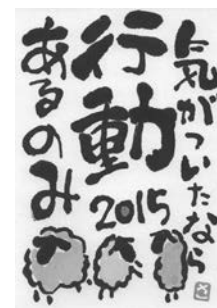 気がついたなら
行動
あるのみ
2015